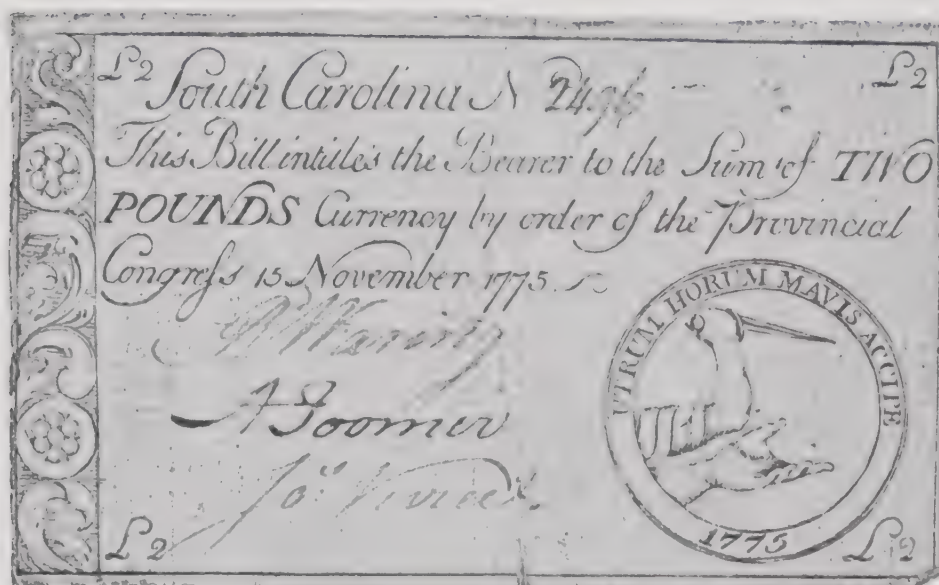 £2 £2
South Carolina N 2496
This Bill intitles the Bearer to the Sum of TWO
POUNDS Currency by order of the Provincial
Congreſs 15 November 1775
UTRUM HORUM MAVIS ACCIPE
A Toomer
Jos.
1775
£2 £2